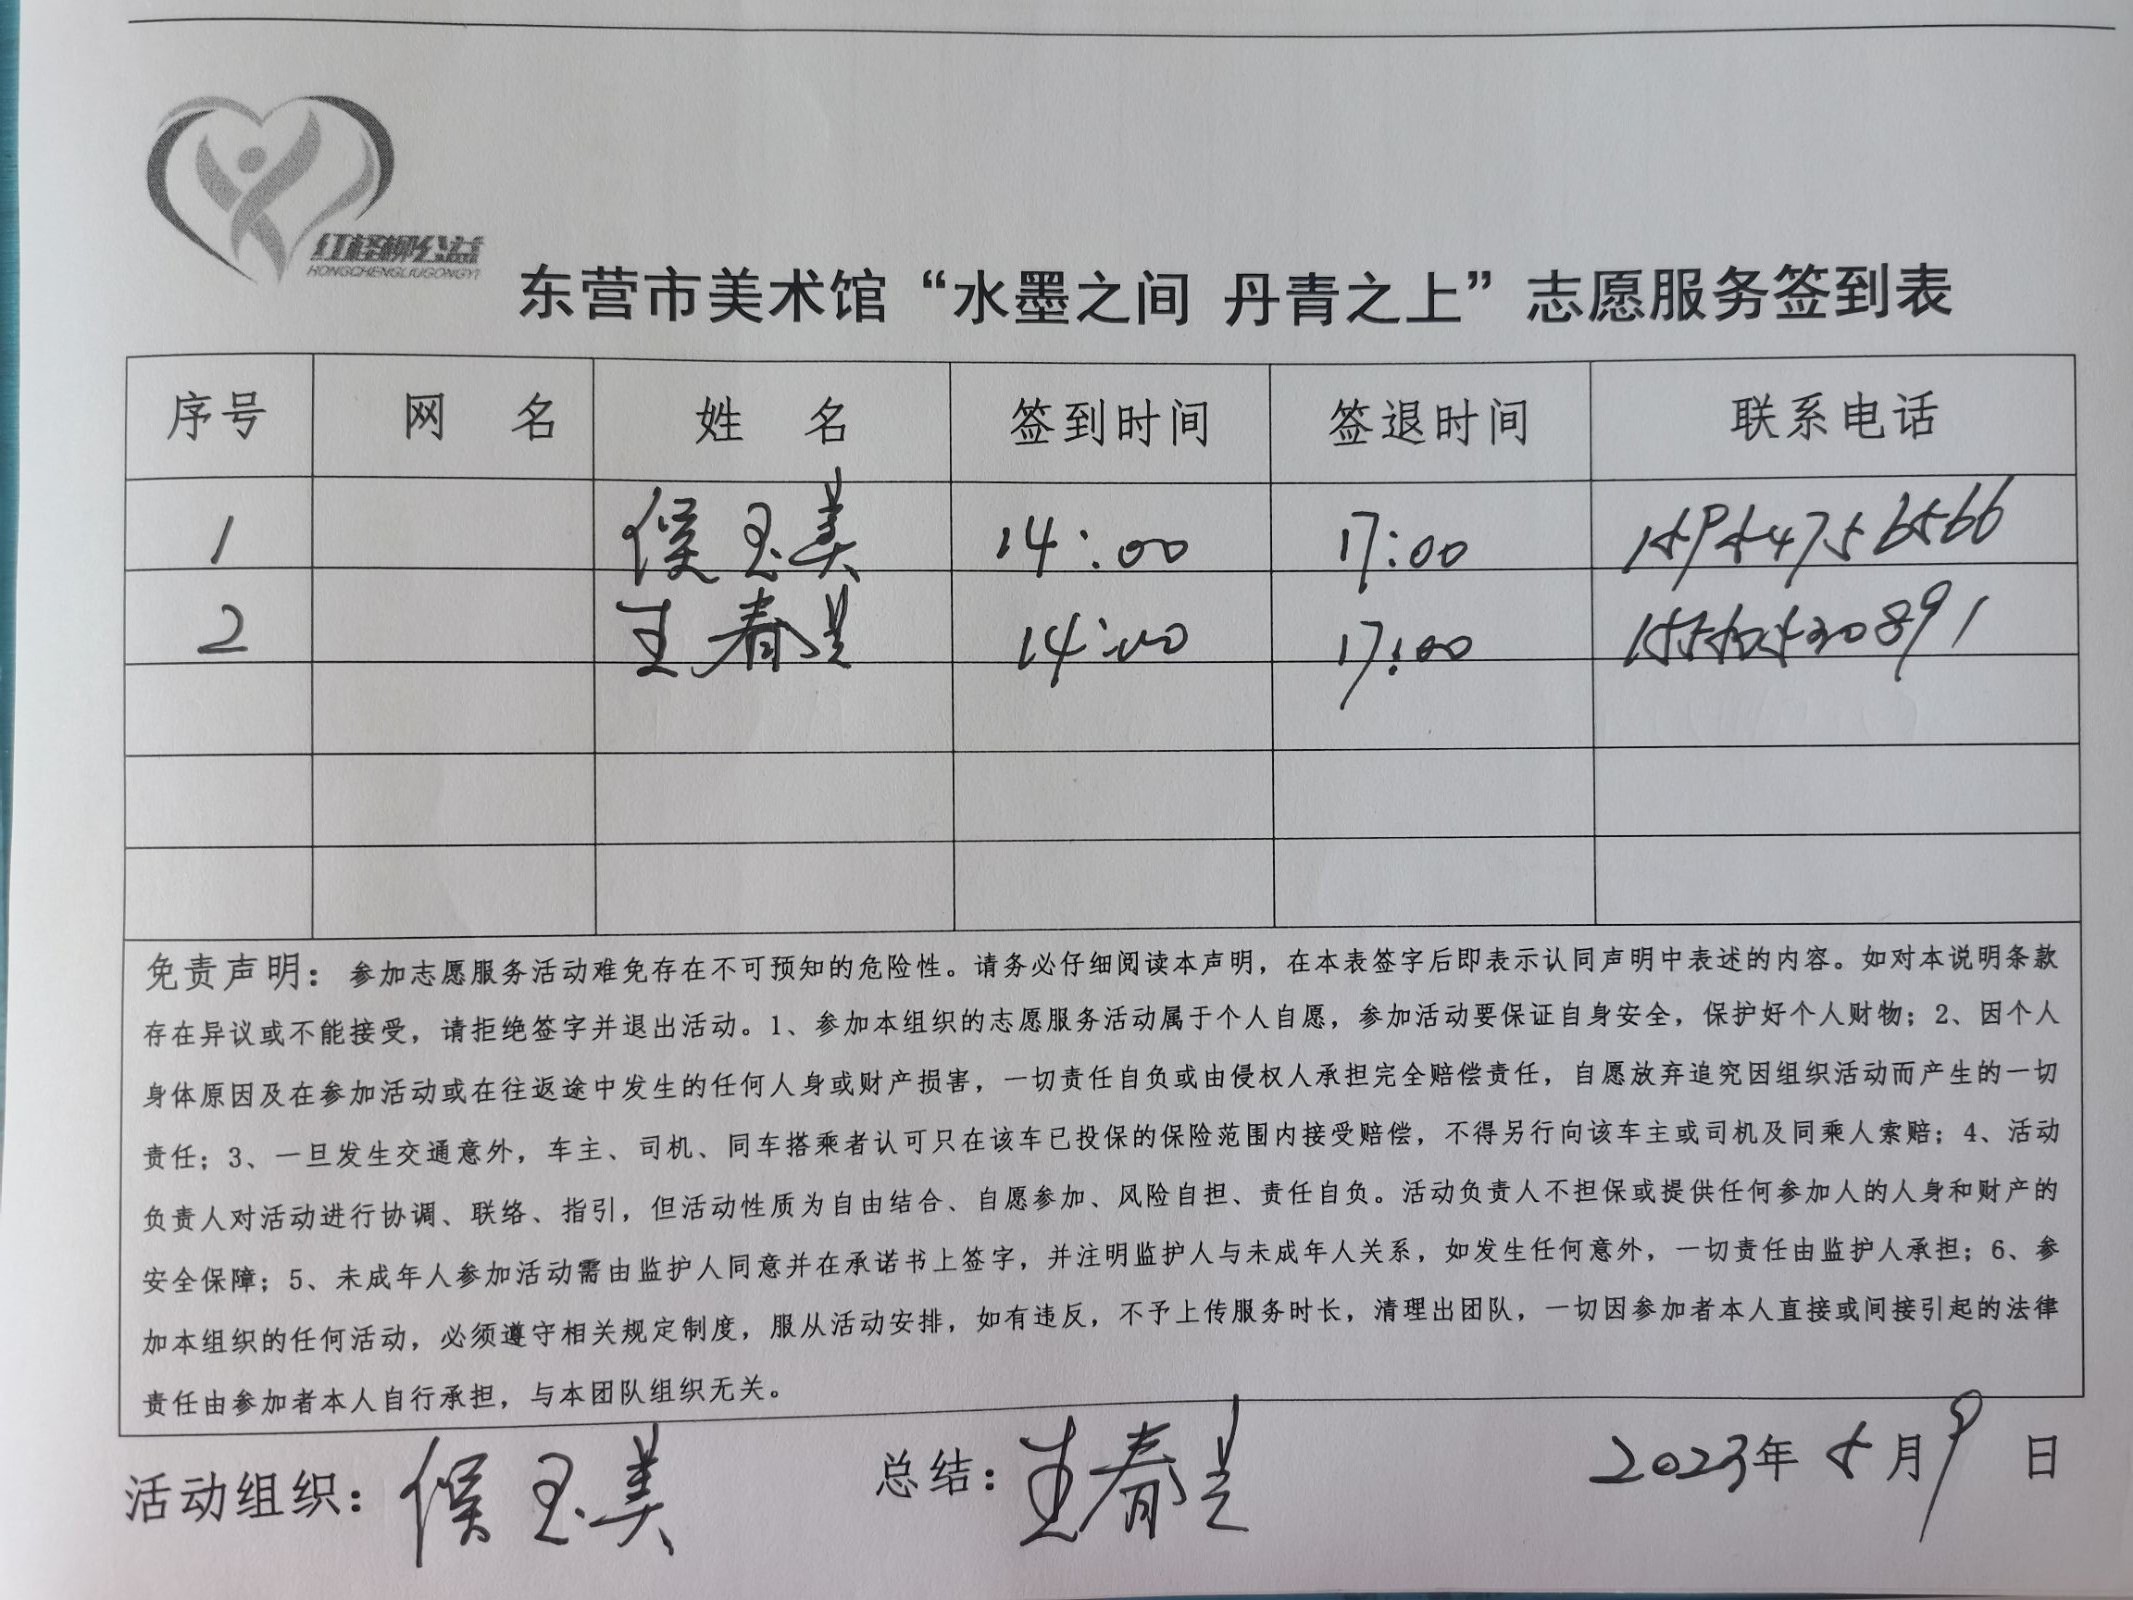 红柽柳公益
HONGCHENGLIUGONGYI
东营市美术馆“水墨之间 丹青之上”志愿服务签到表
序号 网 名 姓 名 签到时间 签退时间 联系电话
1 侯玉美 14:00 17:00 15954756566
2 王春 14:00 17:00
免责声明：参加志愿服务活动难免存在不可预知的危险性。请务必仔细阅读本声明，在本表签字后即表示认同声明中表述的内容。如对本说明条款
存在异议或不能接受，请拒绝签字并退出活动。1、参加本组织的志愿服务活动属于个人自愿，参加活动要保证自身安全，保护好个人财物；2、因个人
身体原因及在参加活动或在往返途中发生的任何人身或财产损害，一切责任自负或由侵权人承担完全赔偿责任，自愿放弃追究因组织活动而产生的一切
责任；3、一旦发生交通意外，车主、司机、同车搭乘者认可只在该车已投保的保险范围内接受赔偿，不得另行向该车主或司机及同乘人索赔；4、活动
负责人对活动进行协调、联络、指引，但活动性质为自由结合、自愿参加、风险自担、责任自负。活动负责人不担保或提供任何参加人的人身和财产的
安全保障；5、未成年人参加活动需由监护人同意并在承诺书上签字，并注明监护人与未成年人关系，如发生任何意外，一切责任由监护人承担；6、参
加本组织的任何活动，必须遵守相关规定制度，服从活动安排，如有违反，不予上传服务时长，清理出团队，一切因参加者本人直接或间接引起的法律
责任由参加者本人自行承担，与本团队组织无关。
活动组织：侯玉美 总结：王春 2023年5月9日